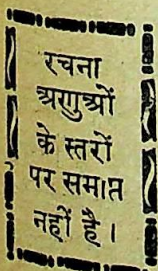 रचना
अणुओं
के स्तरों
पर समाप्त
नहीं है।